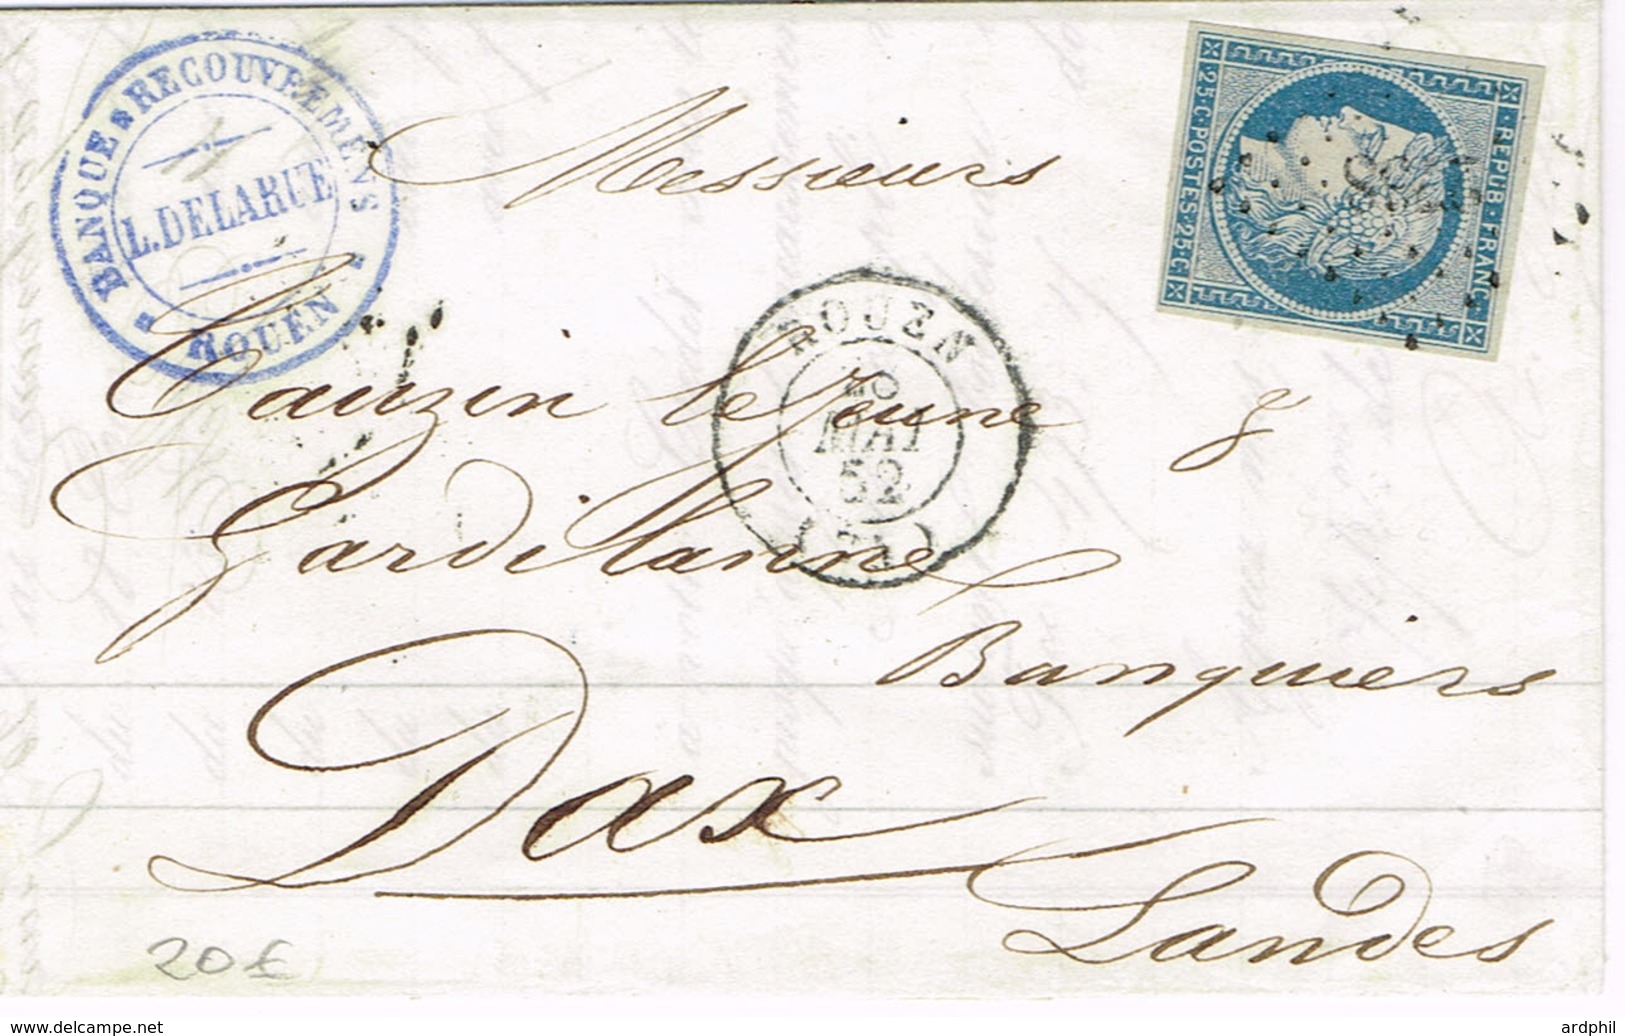 BANQUE & RECOUVREMENTS
L. DELARUE
ROUEN
25·C·POSTES·25·C
RÉPUB·FRANC
Messieurs
Cauzin le Jeune &
Gardilanne
Banquiers
Dax
Landes
ROUEN
MAI
52
20€
www.delcampe.net
ardphil